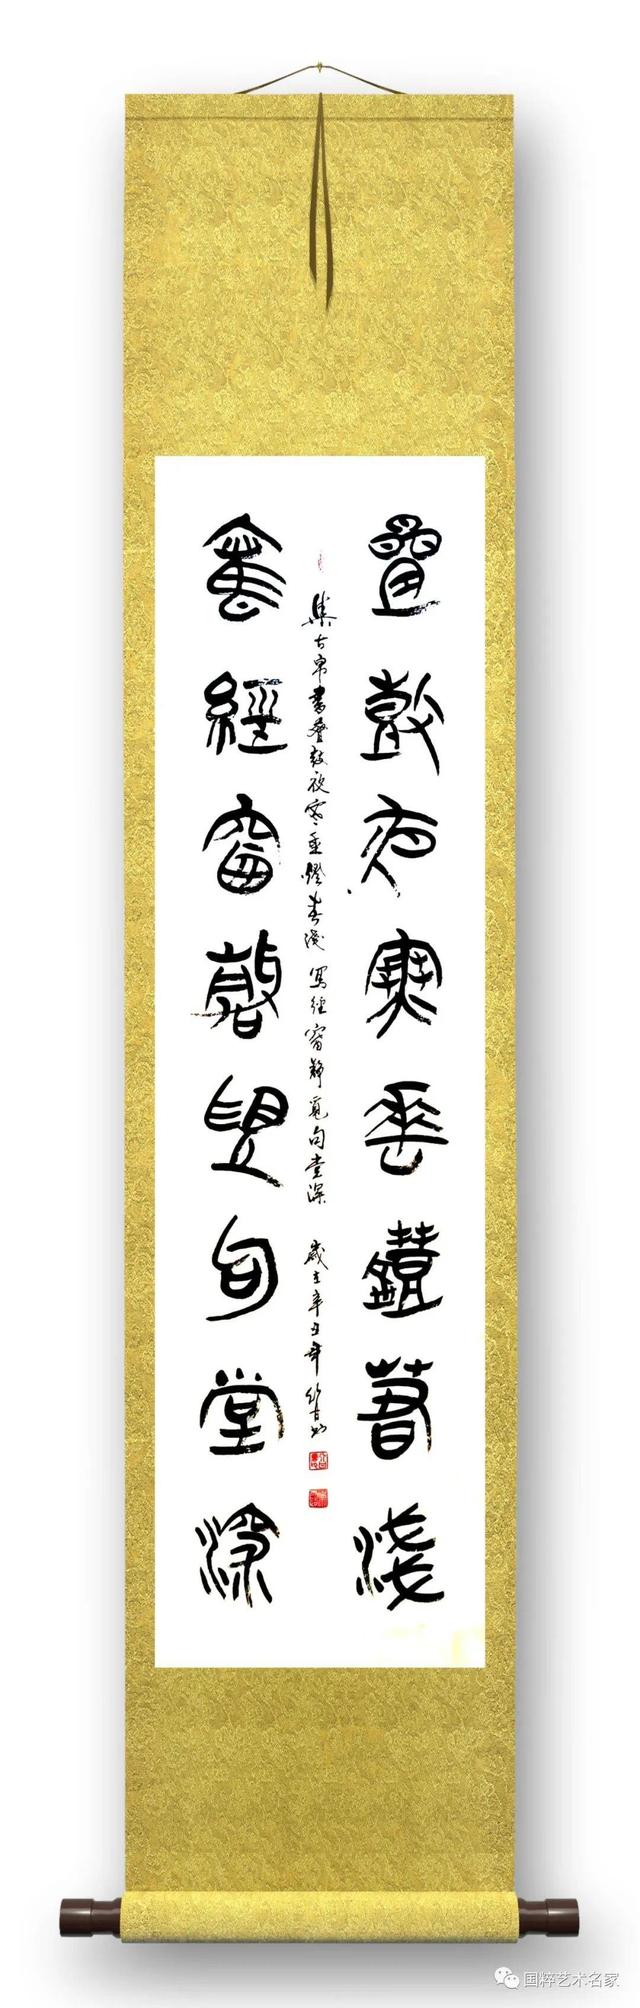 疊鼓夜寒垂鐙春淺
集古帛書叠鼓夜寒垂燈春淺 寫經窗靜覓句堂深 歲在辛丑年
寫經窗靜覓句堂深
国粹艺术名家